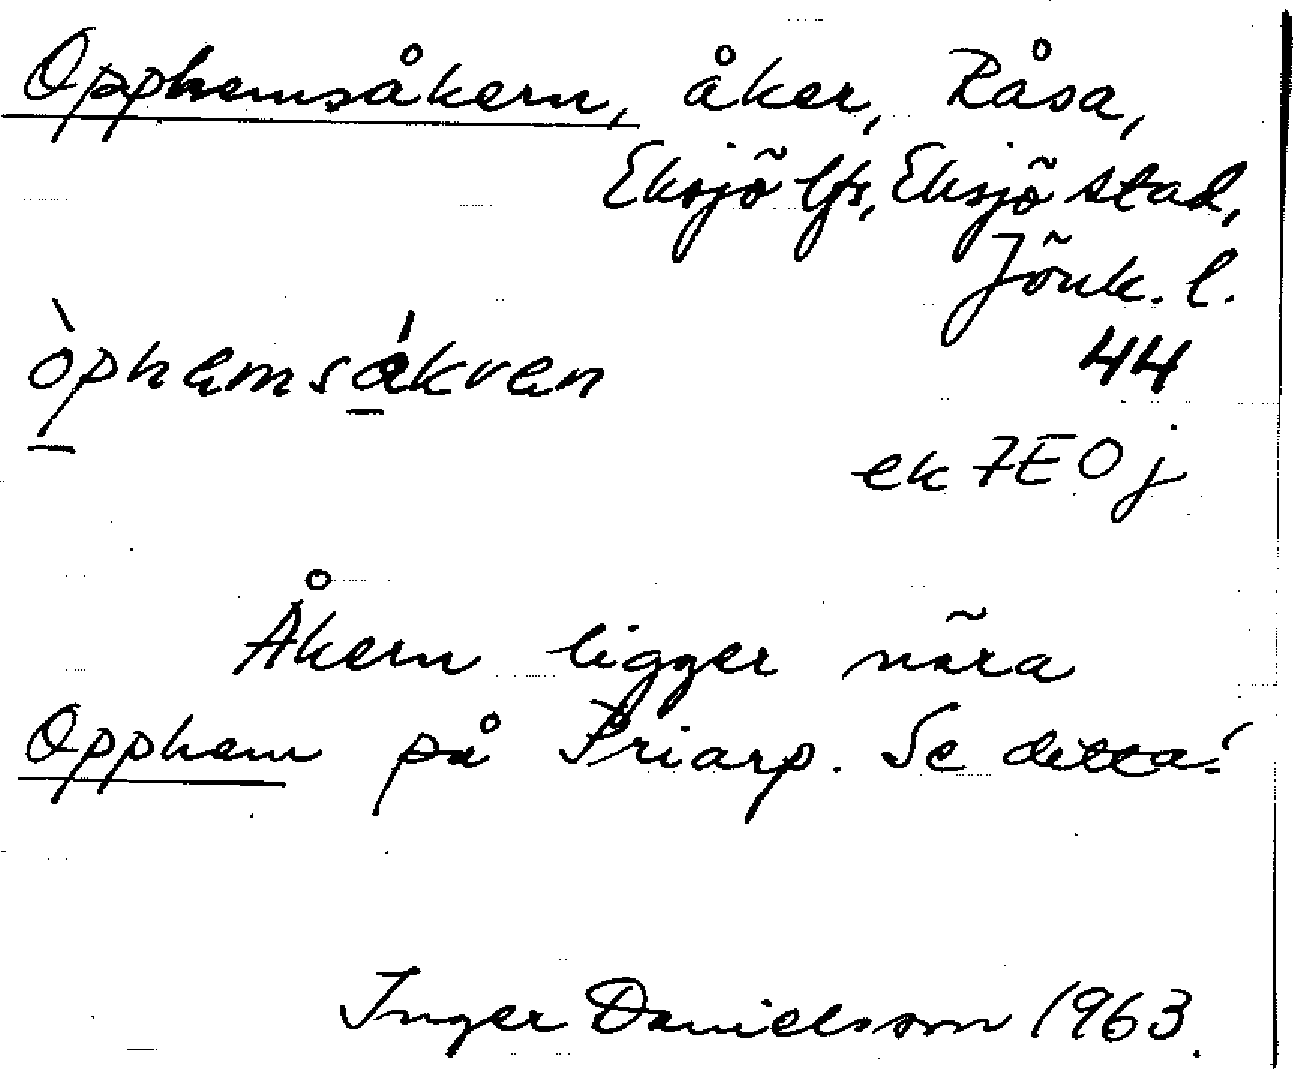 Opphemsåkern, åker, Råsa,
Eksjö lfs, Eksjö stad,
Jönk. l.
òphemsákren
44
ek 7E0j
Åkern ligger nära
Opphem på Friarp. Se detta!
Inger Danielsson 1963.